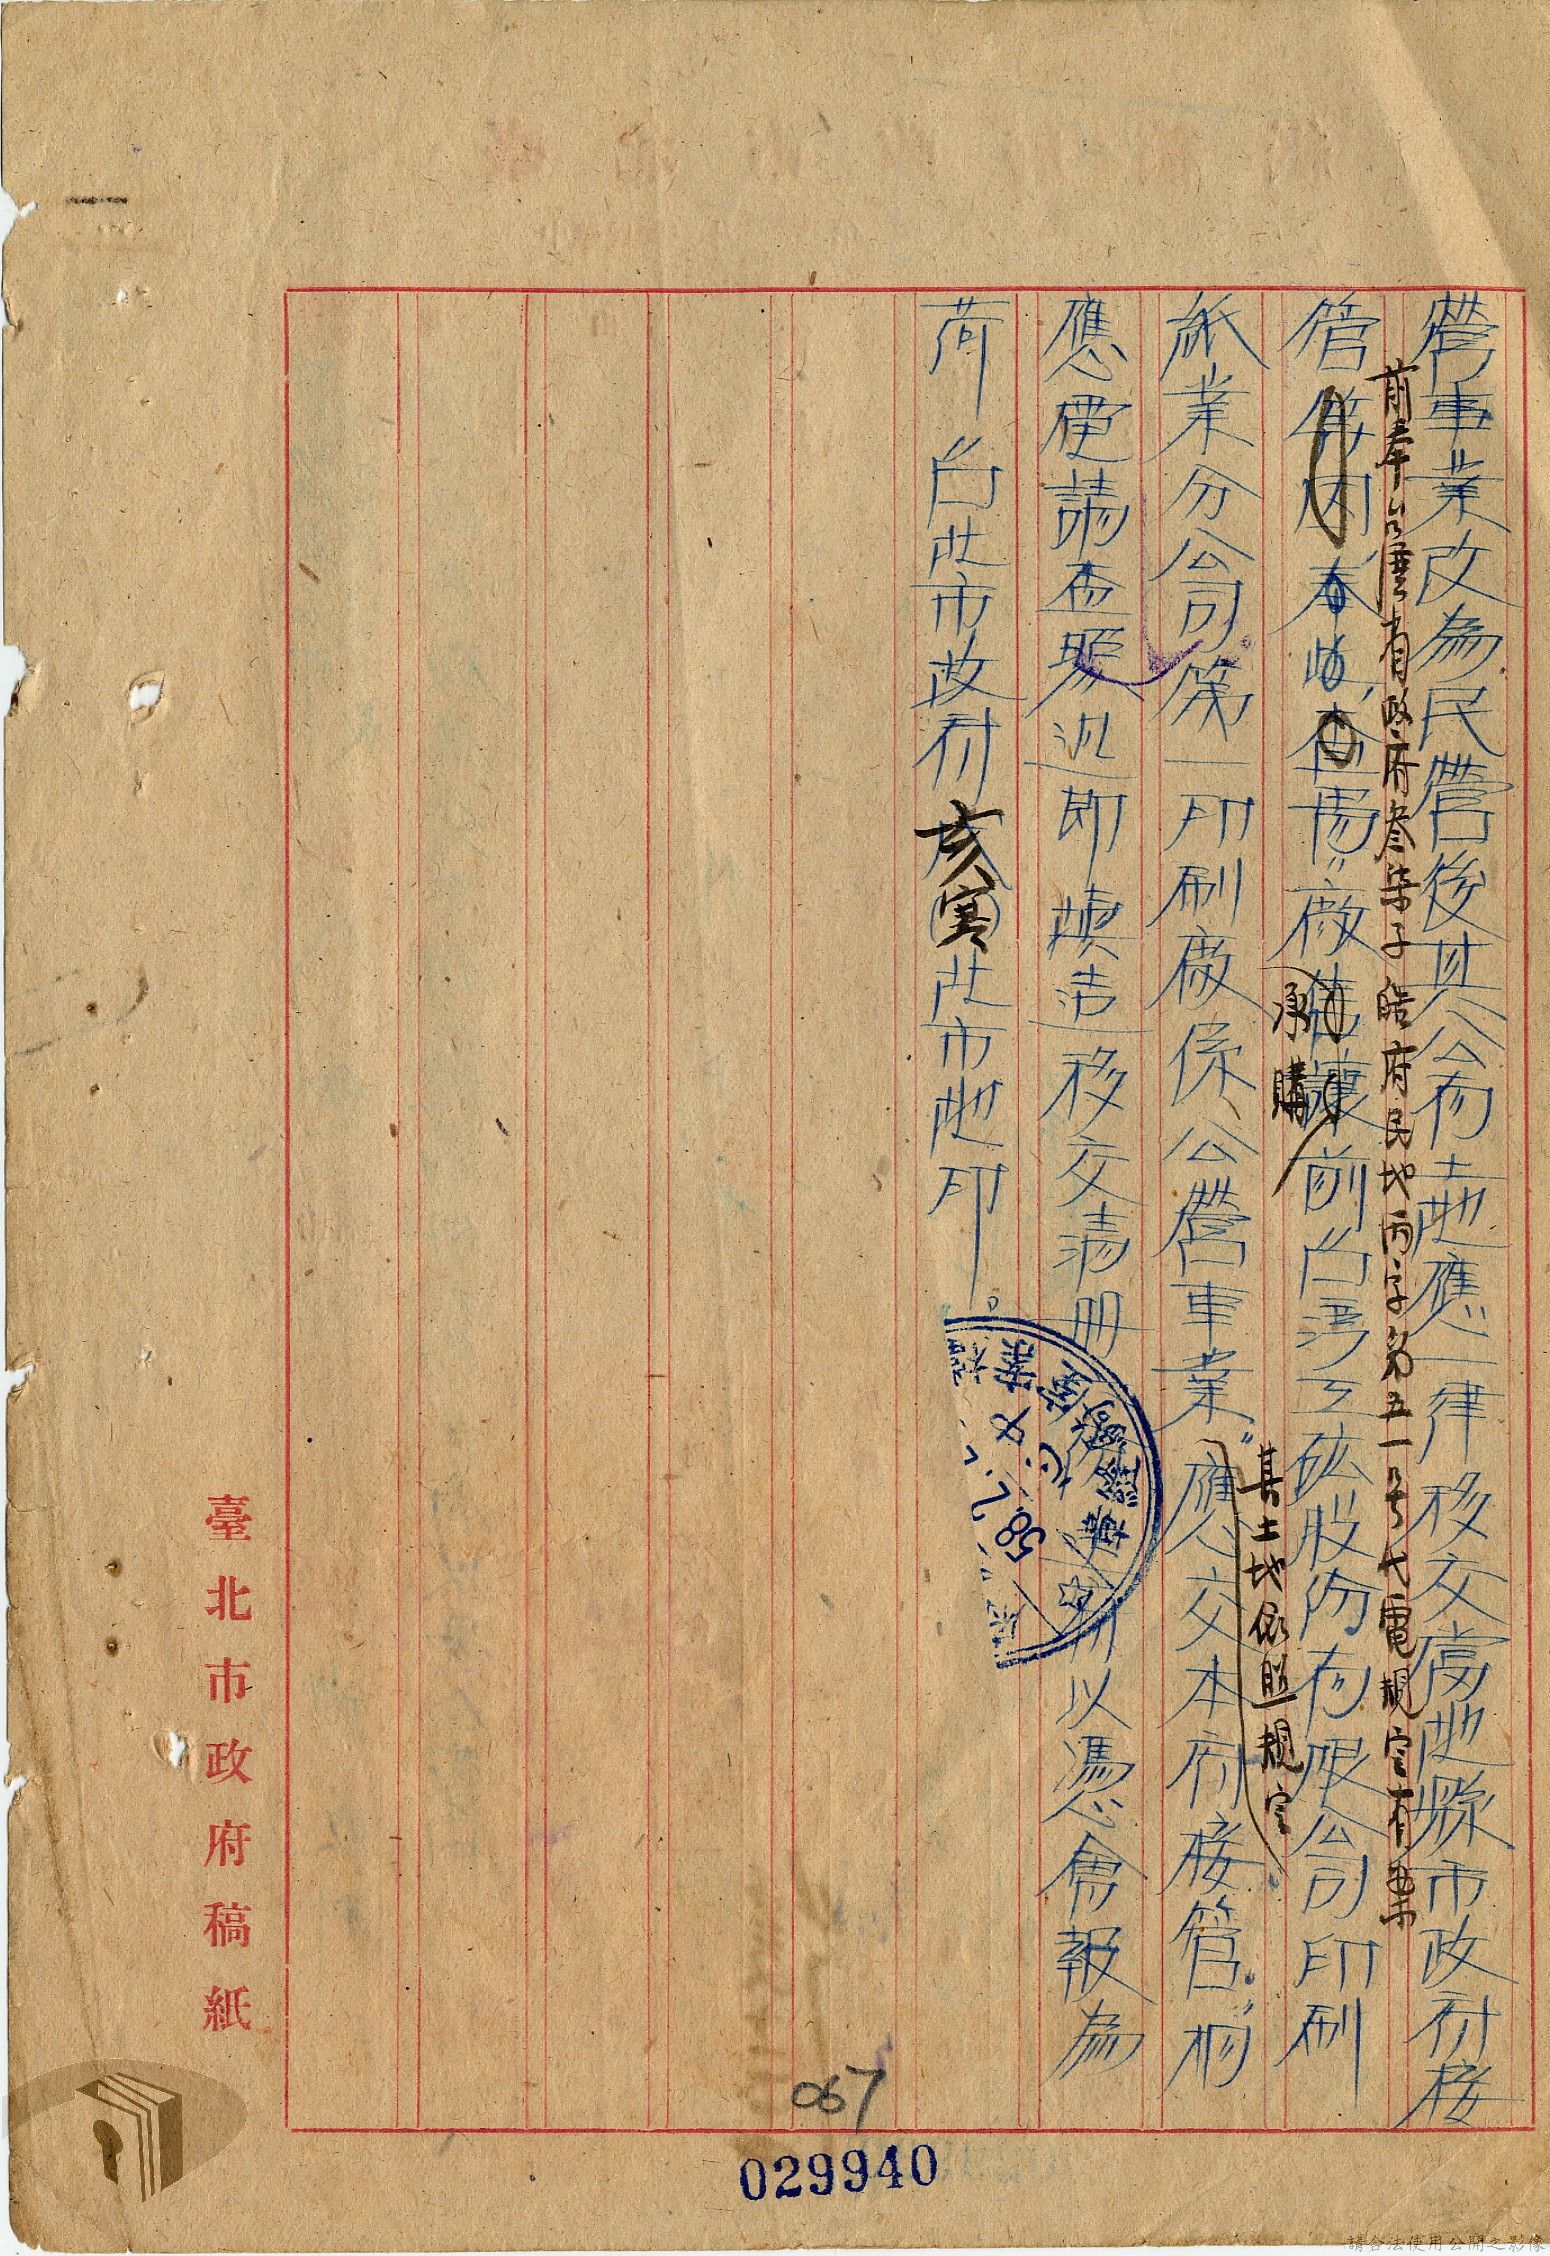 營事業改為民營後其公有土地應一律移交當地縣市政府接
前奉台灣省政府叁柒子皓府民地丙字第五一號代電規定有案
管等因奉此查 廠售讓前台湾工砿股份有限公司印刷
承購
紙業分公司第一印刷廠係公營事業"應交本府接管
其土地依照規定
應電請查照迅即填造移交清冊 以憑會報為
荷 台北市政府 亥(寒)北市地印。
58.7.
臺北市政府稿紙
067
029940
請合法使用公開之影像